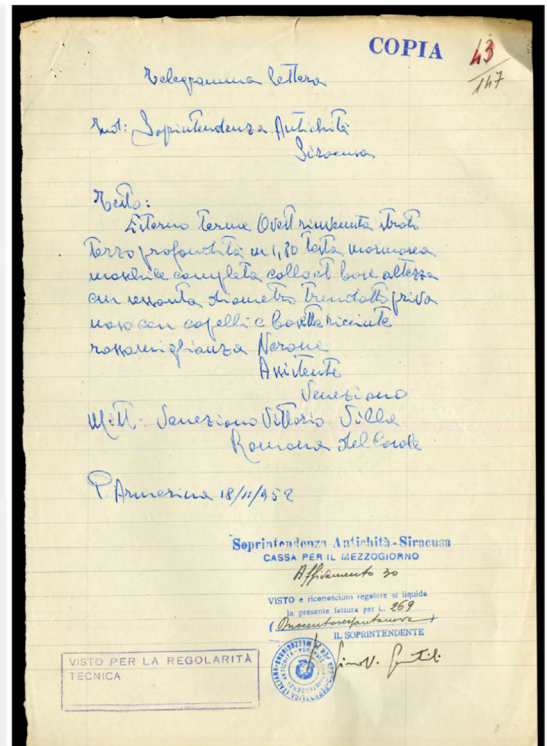 COPIA
43
147
Telegramma lettera
Ind: Soprintendenza Antichità
Siracusa
Testo:
Esterno Terme Ovest rinvenuta strato
terzo profondità m 1,30 testa marmorea
maschile completa collo et base altezza
cm sessanta diametro trentotto priva
naso con capelli e basette ricciute
rassomiglianza Nerone
Assistente
Veneziano
Mitt: Veneziano Vittorio Villa
Romana del Casale
P. Armerina 18/11/952
Soprintendenza Antichità - Siracusa
CASSA PER IL MEZZOGIORNO
Affidamento 30
VISTO e riconosciuto regolare si liquida
la presente fattura per L. 269
(Duecentosessantanove)
IL SOPRINTENDENTE
Gino V. Gentili
VISTO PER LA REGOLARITÀ
TECNICA